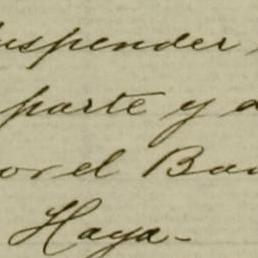 suspender
parte y a
por el Ban
Haya-